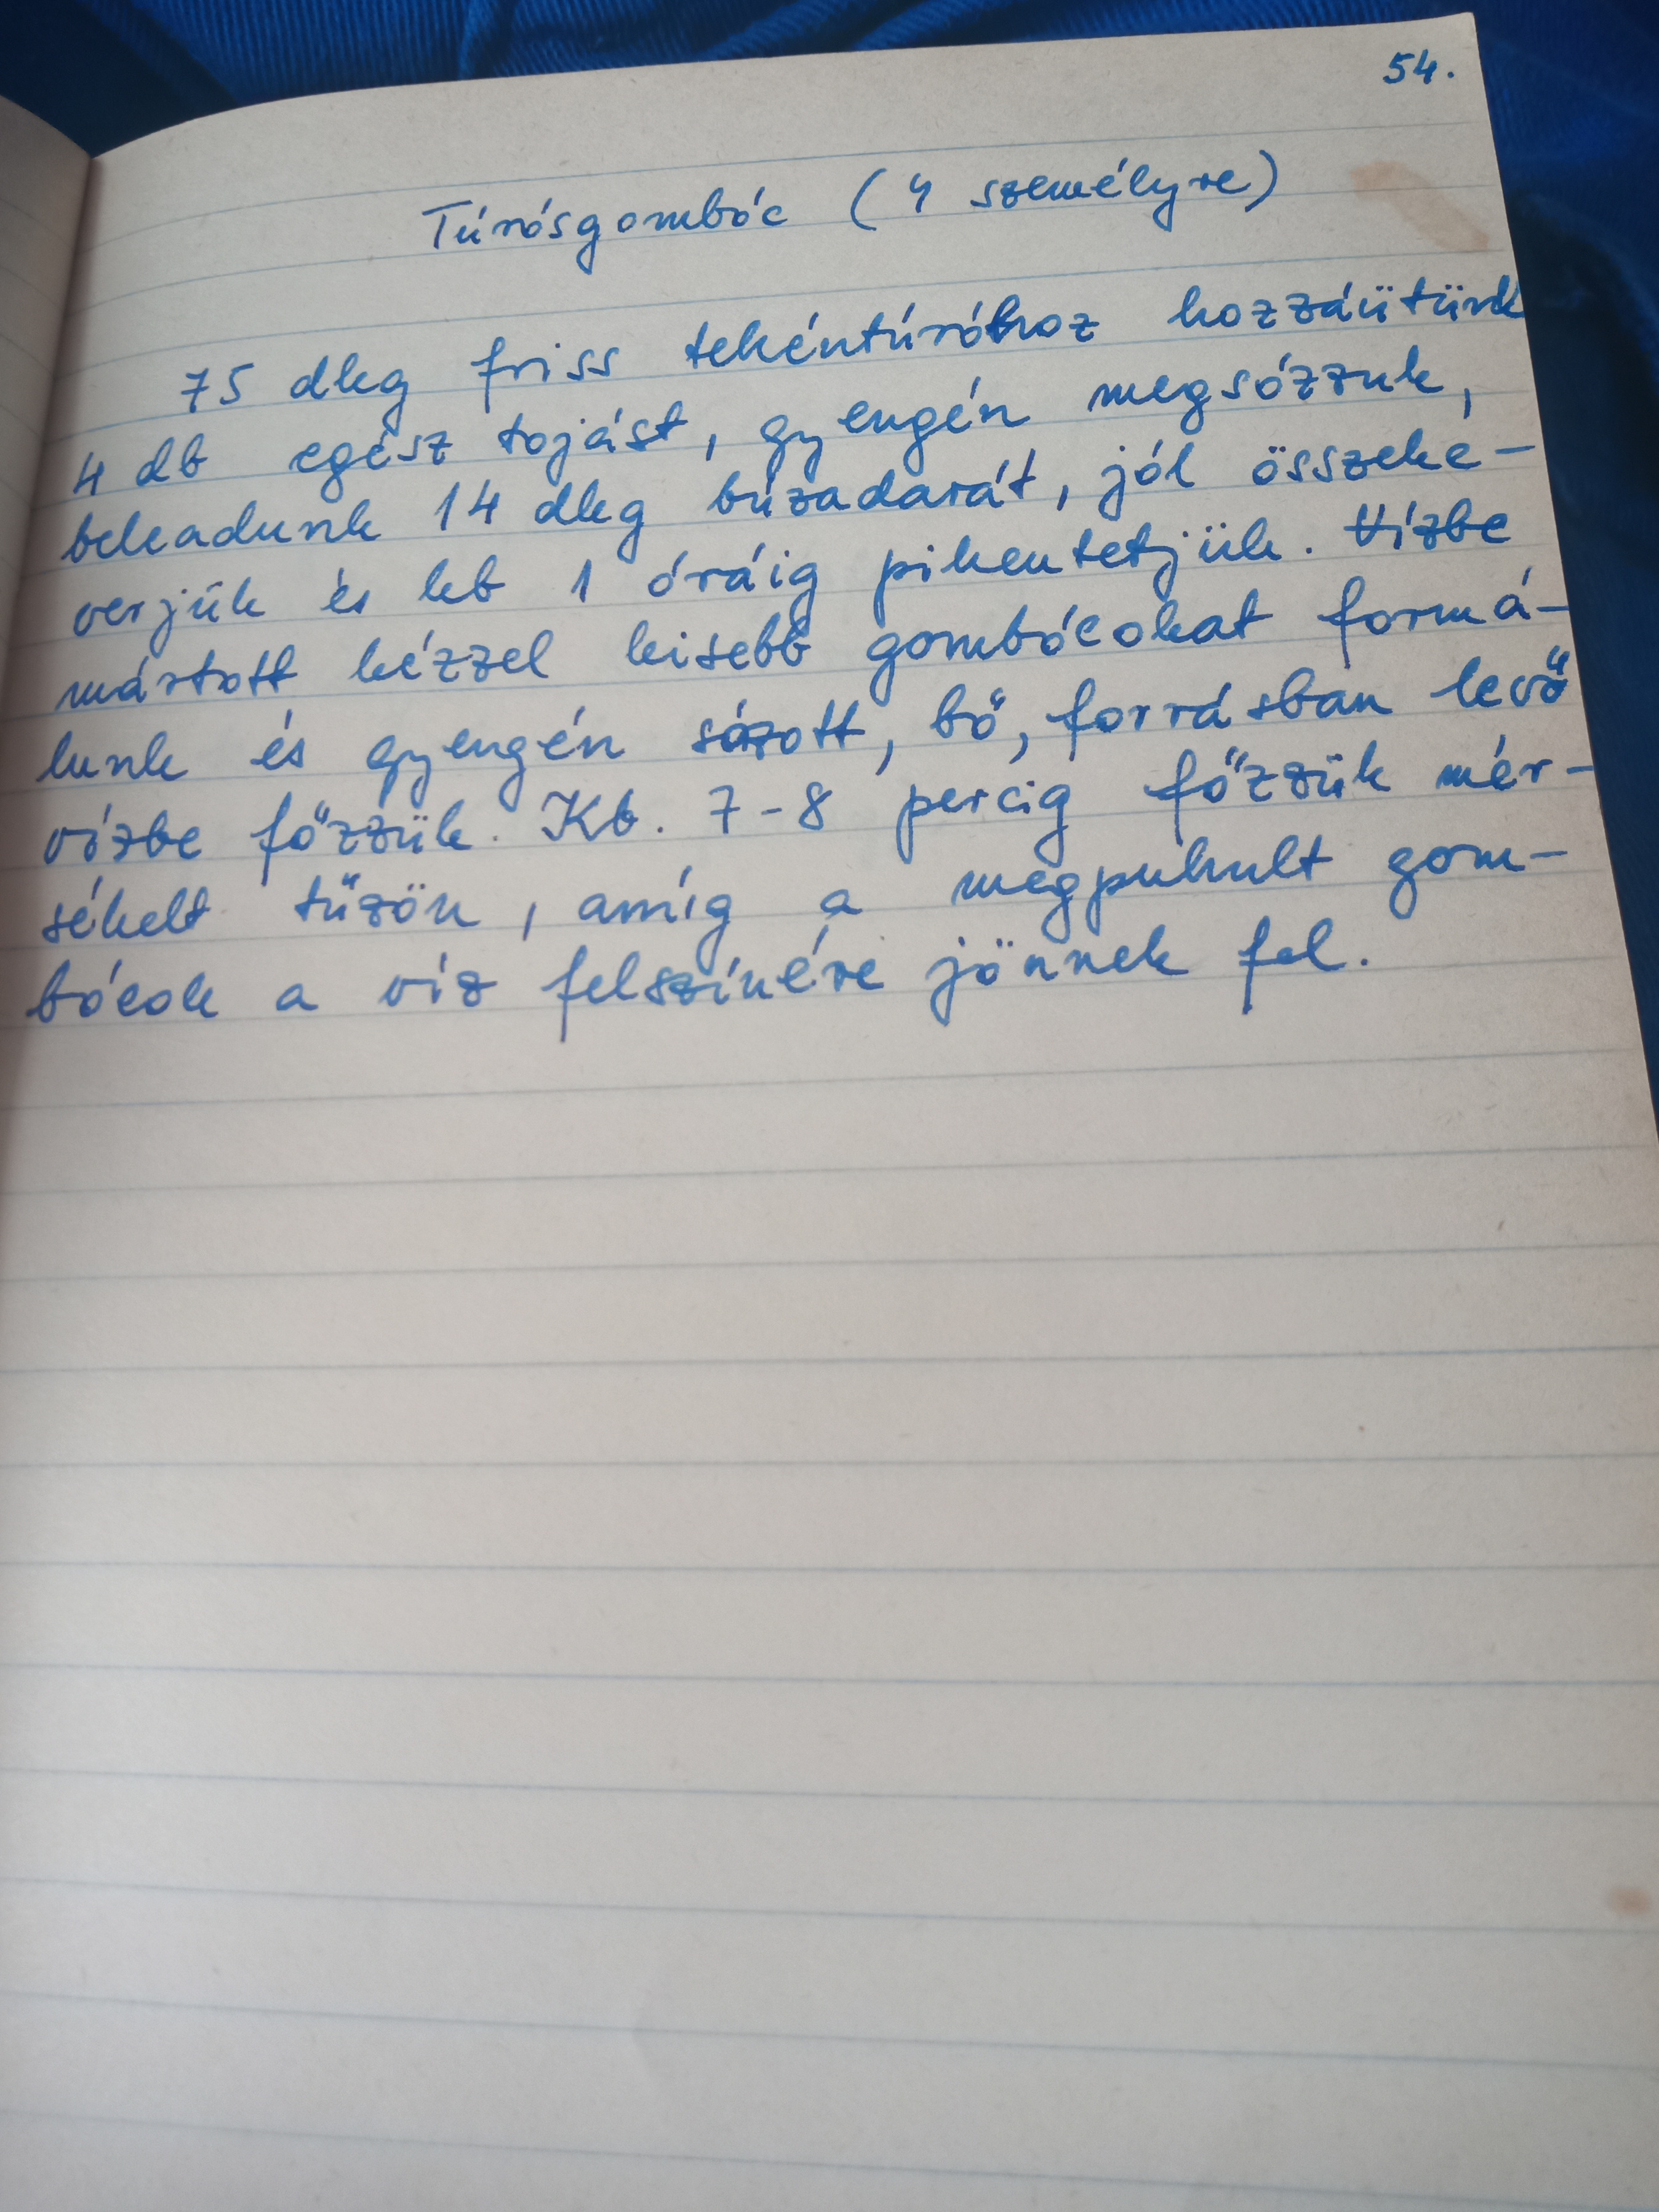 54.
Túrósgombóc (4 személyre)
75 dkg friss tehéntúróhoz hozzáütünk
4 db egész tojást, gyengén megsózzuk,
beleadunk 14 dkg búzadarát, jól összeke-
verjük és kb 1 óráig pihentetjük. Vízbe
mártott kézzel kisebb gombócokat formá-
lunk és gyengén sózott, bő, forrásban levő
vízbe főzzük. Kb. 7-8 percig főzzük mér-
sékelt tűzön, amíg a megpuhult gom-
bócok a víz felszínére jönnek fel.